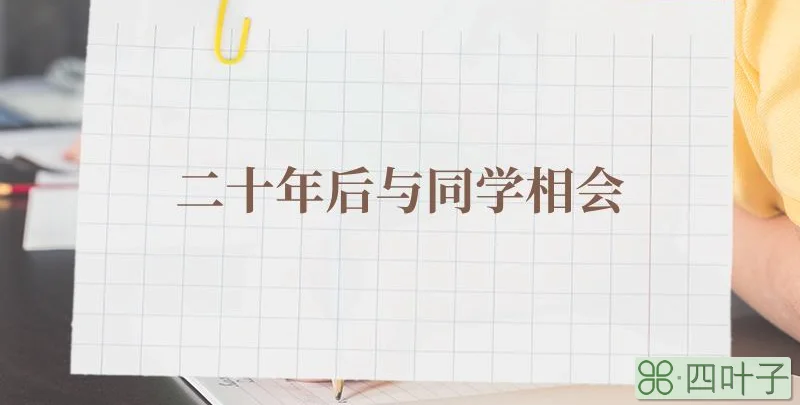 二十年后与同学相会
四叶子